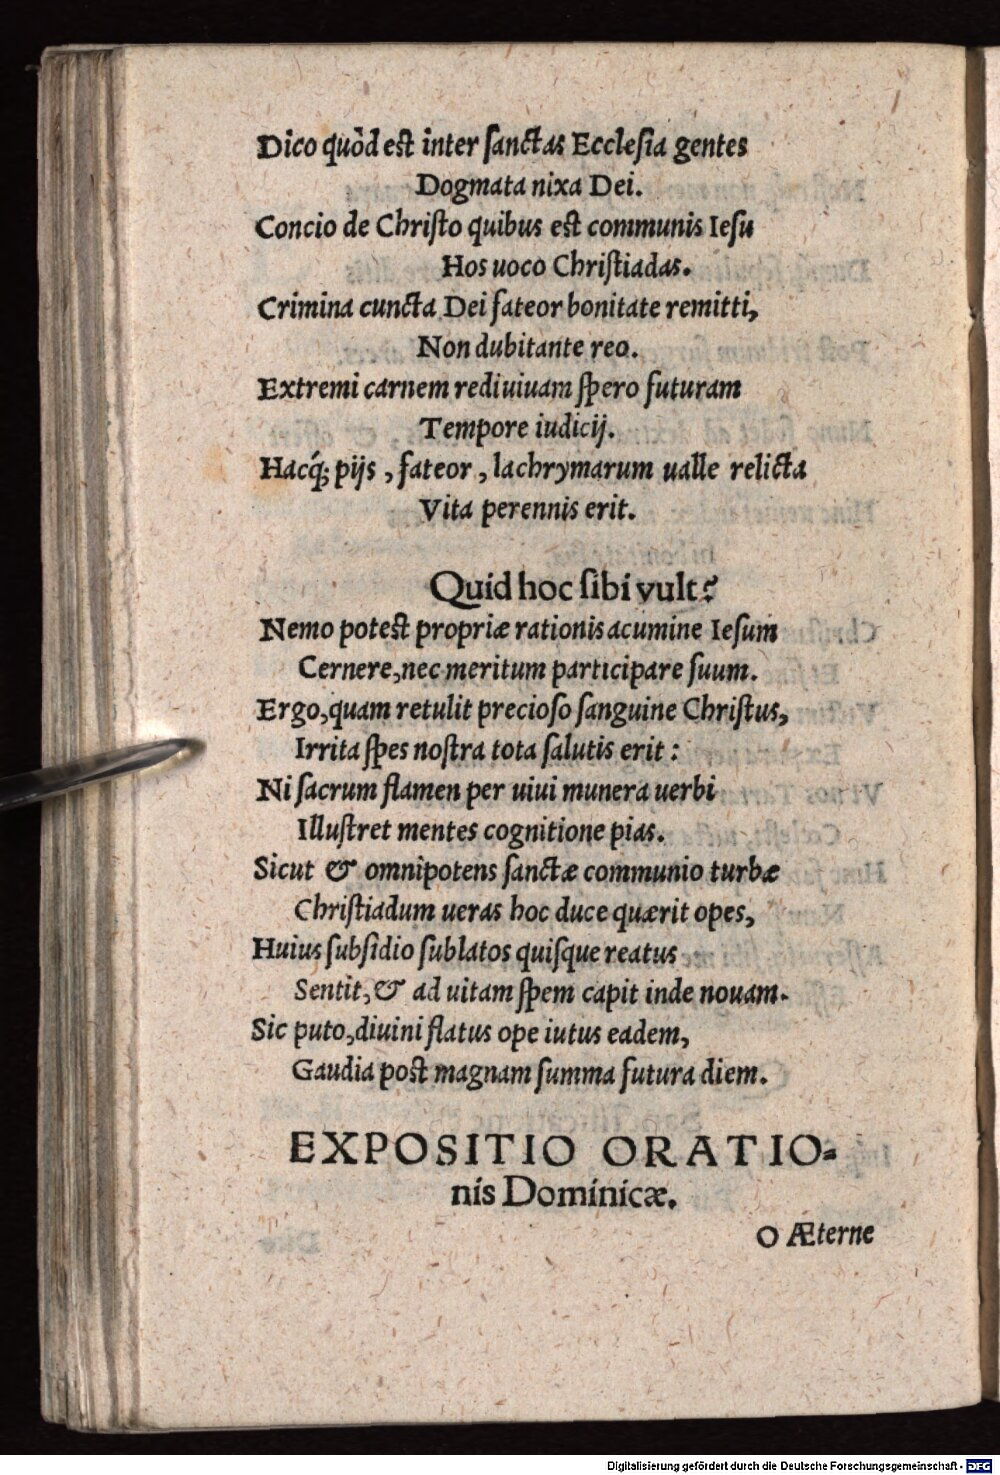 Dico quòd est inter ſanctas Eccleſia gentes
Dogmata nixa Dei.
Concio de Chriſto quibus est communis Ieſu
Hos uoco Chriſtiadas.
Crimina cuncta Dei fateor bonitate remitti,
Non dubitante reo.
Extremi carnem rediuiuam ſpero futuram
Tempore iudicij.
Hacq́; pijs, fateor, lachrymarum ualle relicta
Vita perennis erit.
Quid hoc ſibi vult?
Nemo potest propriæ rationis acumine Ieſum
Cernere, nec meritum participare ſuum.
Ergo, quam retulit precioſo ſanguine Chriſtus,
Irrita ſpes noſtra tota ſalutis erit:
Ni ſacrum flamen per uiui munera uerbi
Illuſtret mentes cognitione pias.
Sicut & omnipotens ſanctæ communio turbæ
Chriſtiadum ueras hoc duce quærit opes,
Huius ſubſidio ſublatos quiſque reatus
Sentit, & ad uitam ſpem capit inde nouam.
Sic puto, diuini flatus ope iutus eadem,
Gaudia post magnam ſumma futura diem.
EXPOSITIO ORATIO-
nis Dominicæ.
O Æterne
Digitalisierung gefördert durch die Deutsche Forschungsgemeinschaft - DFG